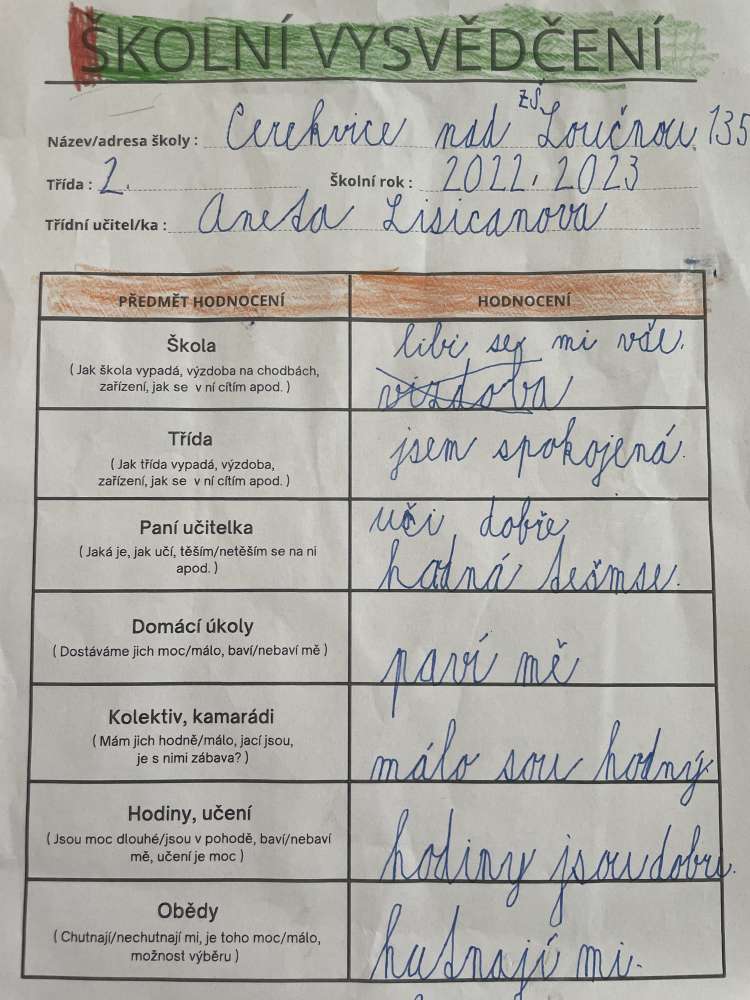 ŠKOLNÍ VYSVĚDČENÍ
ZŠ
Název/adresa školy : Cerekvice nad Loučnou 135
Třída : 2. Školní rok : 2022, 2023
Třídní učitel/ka : Aneta Lisicanova
PŘEDMĚT HODNOCENÍ HODNOCENÍ
Škola
( Jak škola vypadá, výzdoba na chodbách,
zařízení, jak se v ní cítím apod. )
libi se mi vše.
vizdoba
Třída
( Jak třída vypadá, výzdoba,
zařízení, jak se v ní cítím apod. )
jsem spokojená.
Paní učitelka
( Jaká je, jak učí, těším/netěším se na ni
apod. )
učí dobře
hodná tešmse.
Domácí úkoly
( Dostáváme jich moc/málo, baví/nebaví mě )
paví mě
Kolektiv, kamarádi
( Mám jich hodně/málo, jací jsou,
je s nimi zábava? )
málo sou hodný.
Hodiny, učení
( Jsou moc dlouhé/jsou v pohodě, baví/nebaví
mě, učení je moc )
hodiny jsou dobri.
Obědy
( Chutnají/nechutnají mi, je toho moc/málo,
možnost výběru )
hutnají mi.